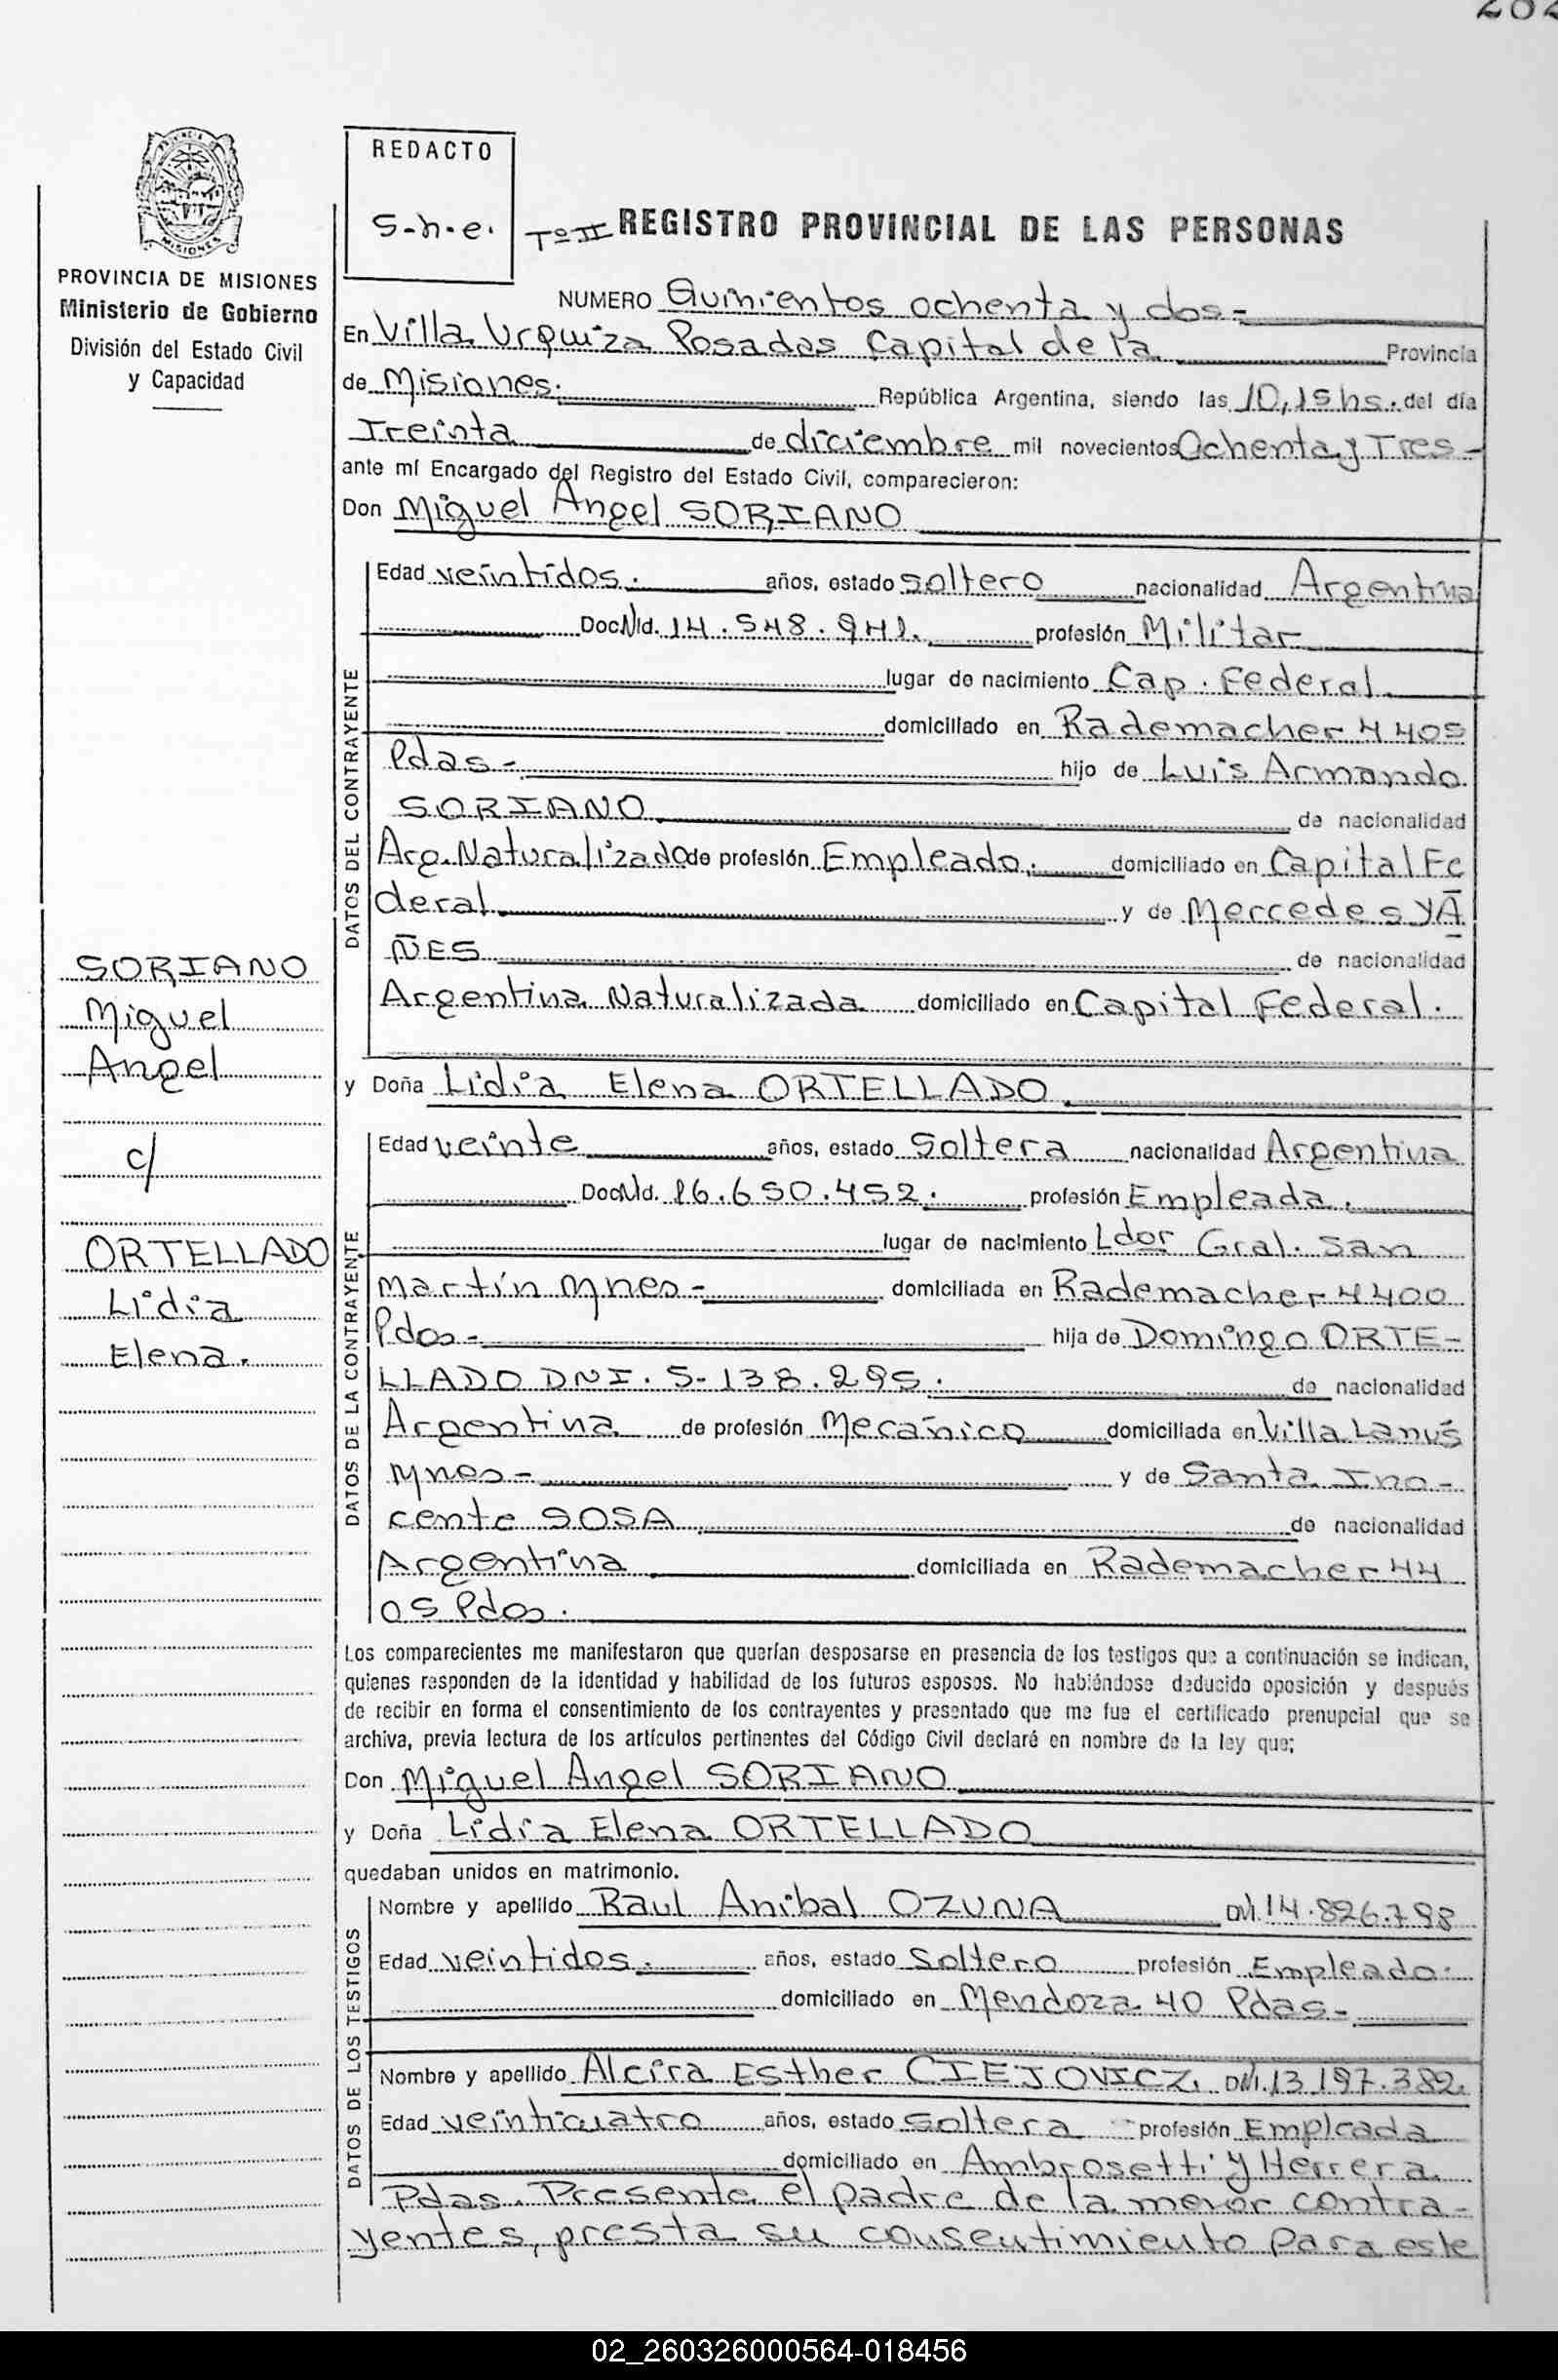 282
REDACTO
S-h-e.
Tº II REGISTRO PROVINCIAL DE LAS PERSONAS
PROVINCIA DE MISIONES
Ministerio de Gobierno
División del Estado Civil
y Capacidad
NUMERO Quinientos ochenta y dos.-
En Villa Urquiza Posadas Capital de la Provincia
de Misiones. República Argentina, siendo las 10,15hs. del día
Treinta de diciembre mil novecientos Ochenta y Tres-
ante mí Encargado del Registro del Estado Civil, comparecieron:
Don Miguel Angel SORIANO
DATOS DEL CONTRAYENTE
Edad veintidos. años, estado soltero nacionalidad Argentina
Doc.Nºd. 14.548.941. profesión Militar
lugar de nacimiento Cap. Federal
domiciliado en Rademacher 4405
Pdas- hijo de Luis Armando
SORIANO de nacionalidad
Arg. Naturalizado de profesión Empleado. domiciliado en Capital Fe
deral y de Mercedes YA
ÑES de nacionalidad
Argentina Naturalizada domiciliado en Capital Federal.
SORIANO
Miguel
Angel
c/
ORTELLADO
Lidia
Elena.
y Doña Lidia Elena ORTELLADO
DATOS DE LA CONTRAYENTE
Edad veinte años, estado Soltera nacionalidad Argentina
Doc.Nºd. 16.650.452. profesión Empleada.
lugar de nacimiento Ldor Gral. San
Martín Mnes- domiciliada en Rademacher 4400
Pdas- hija de Domingo ORTE-
LLADO DNI. 5-138.295. de nacionalidad
Argentina de profesión Mecánico domiciliada en Villa Lanús
Mnes- y de Santa Ino-
cente SOSA de nacionalidad
Argentina domiciliada en Rademacher 44
05 Pdas.
Los comparecientes me manifestaron que querían desposarse en presencia de los testigos que a continuación se indican,
quienes responden de la identidad y habilidad de los futuros esposos. No habiéndose deducido oposición y después
de recibir en forma el consentimiento de los contrayentes y presentado que me fue el certificado prenupcial que se
archiva, previa lectura de los artículos pertinentes del Código Civil declaré en nombre de la ley que;
Don Miguel Angel SORIANO
y Doña Lidia Elena ORTELLADO
quedaban unidos en matrimonio.
DATOS DE LOS TESTIGOS
Nombre y apellido Raul Anibal OZUNA DNI. 14.826.798
Edad veintidos. años, estado Soltero profesión Empleado.
domiciliado en Mendoza 40 Pdas-
Nombre y apellido Alcira Esther CIEJOVICZ. DNI. 13.197.382.
Edad veinticuatro años, estado Soltera profesión Empleada
domiciliado en Ambrosetti y Herrera
Pdas. Presente el padre de la menor contra-
yentes, presta su consentimiento para este
02_260326000564-018456